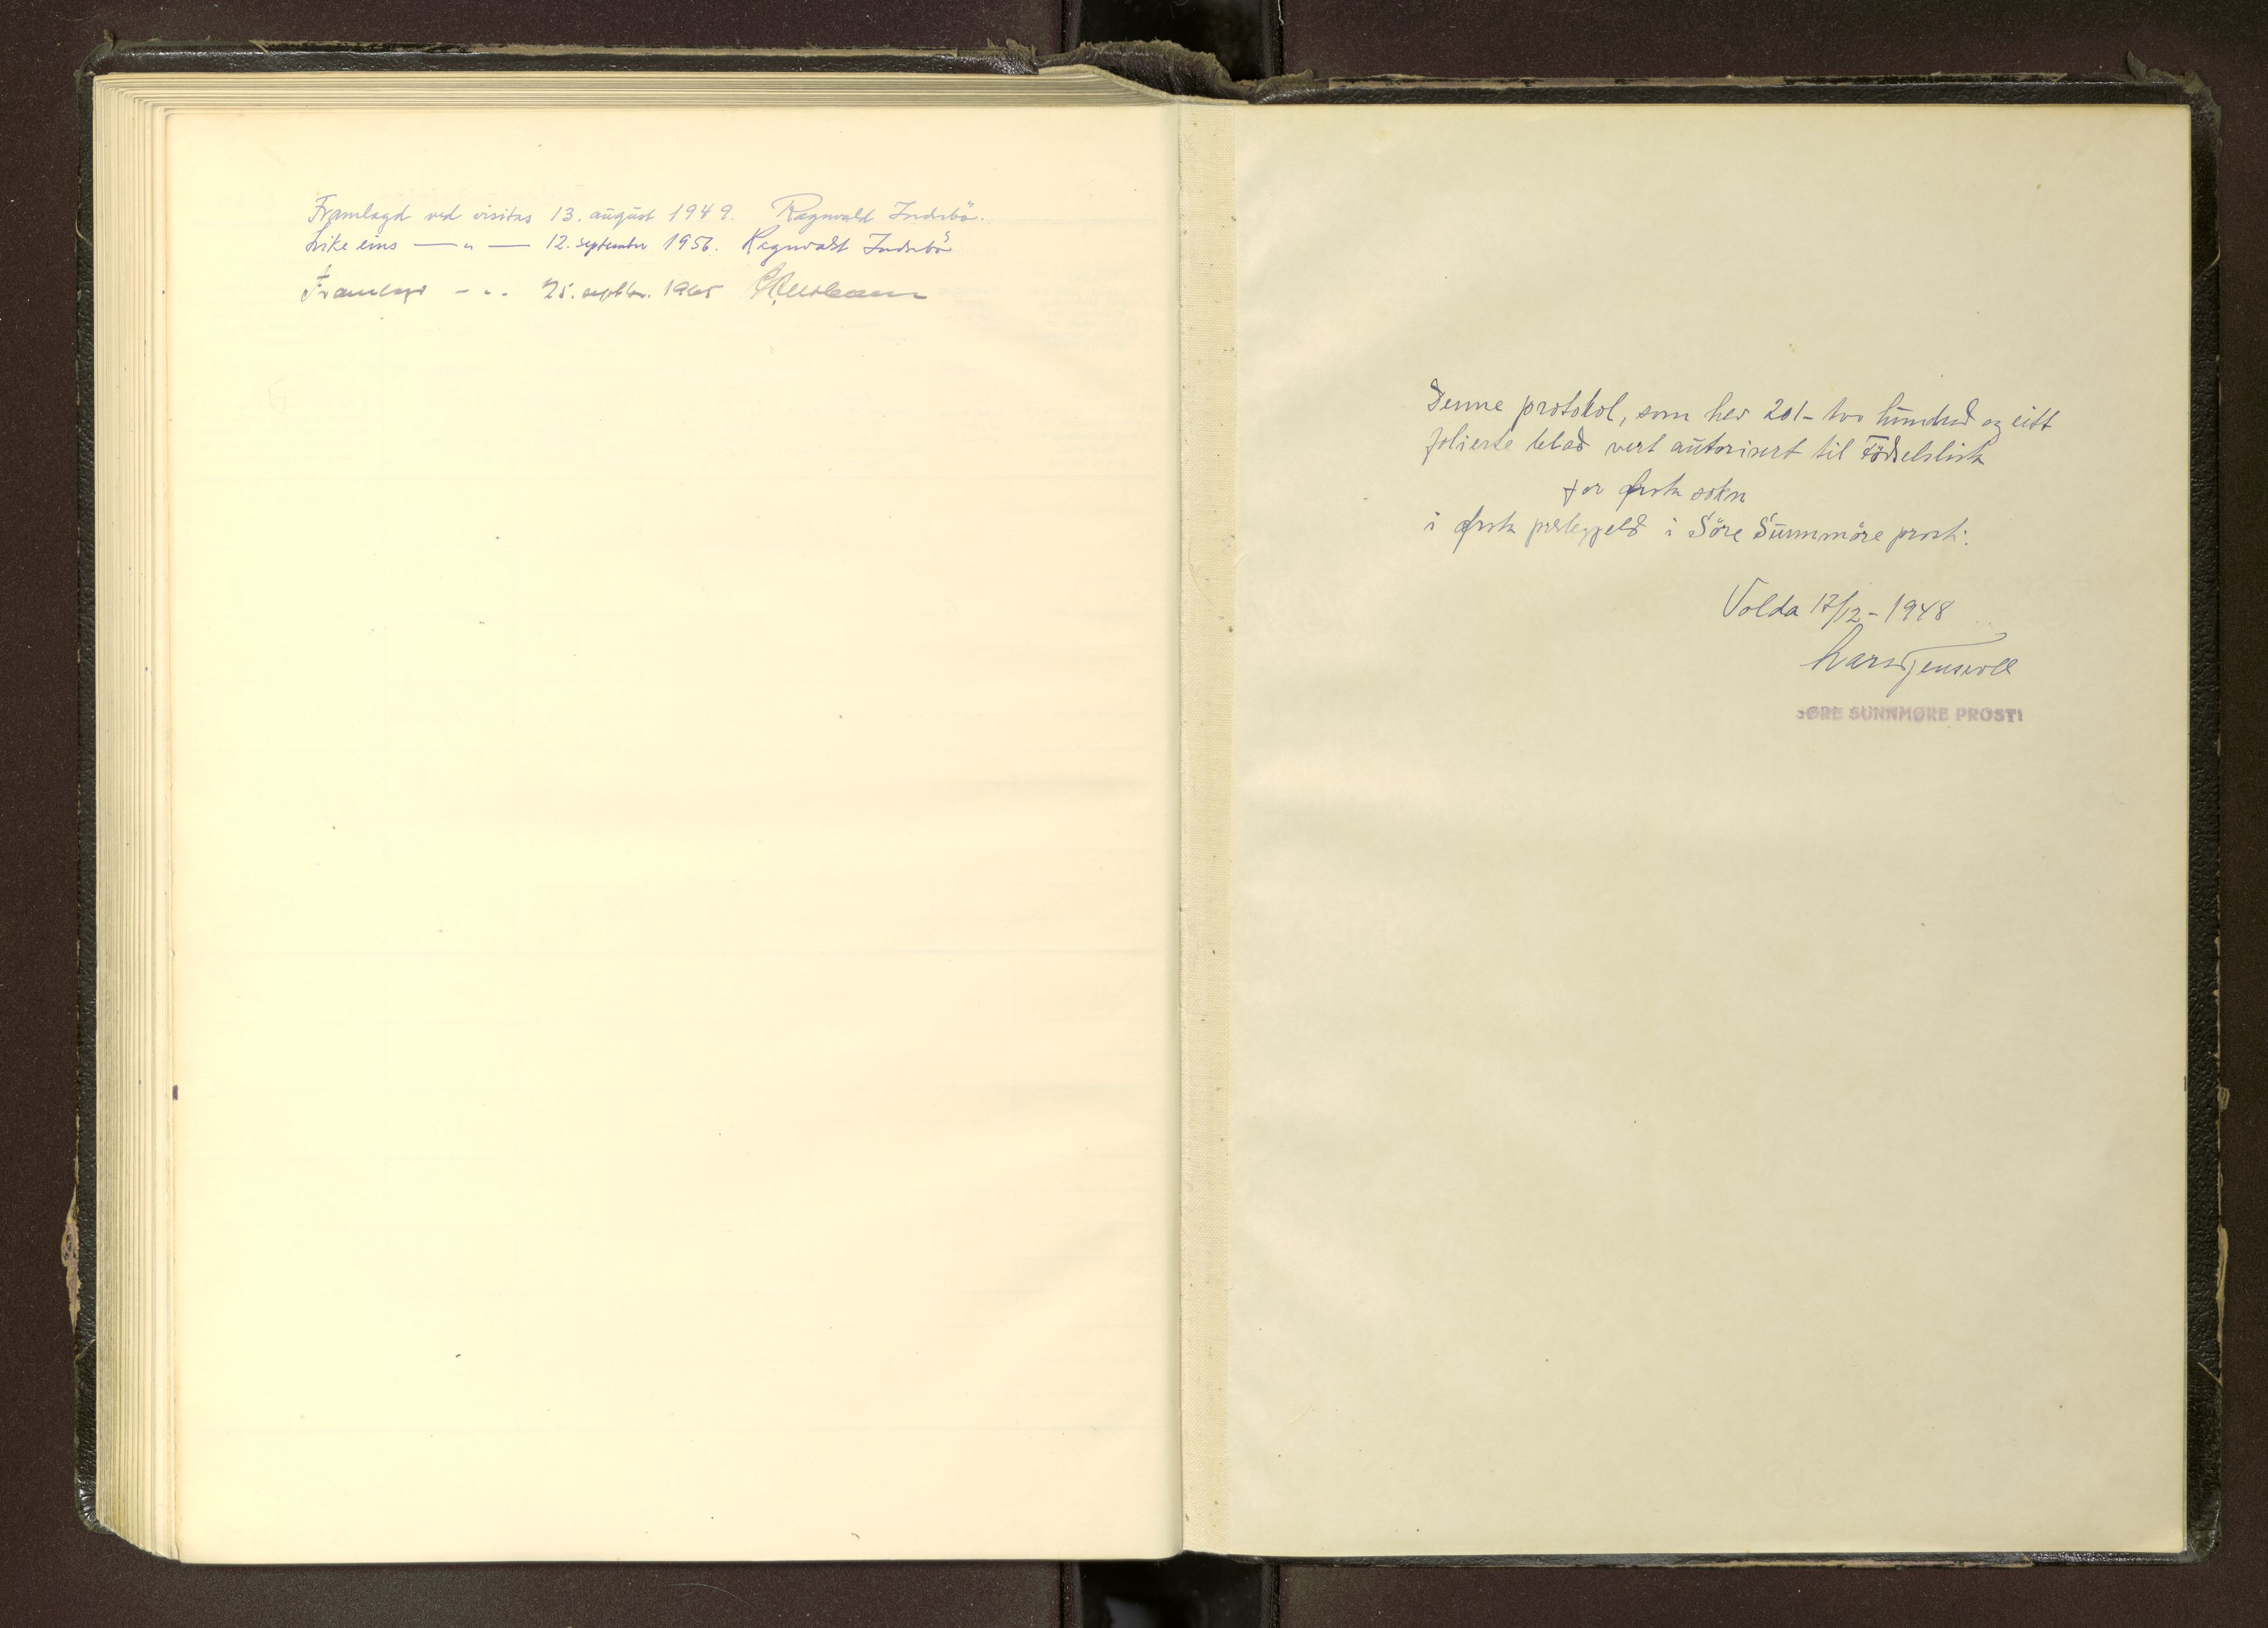 Framlagd ved visitas 13. august 1949. Ragnvald Indrebö.
Like eins — " — 12. september 1956. Ragnvald Indrebö
Framlagt - " - 25. septbr. 1965
Denne protokol, som her 201 - two hundred og eitt
folierte blad vert autorisert til Födselslista
for Ørsta sokn
i Ørsta prestegjeld i Söre Sunnmöre prosti.
Volda 17/12 - 1948
Lars Tjensvoll
SØRE SUNNMØRE PROSTI